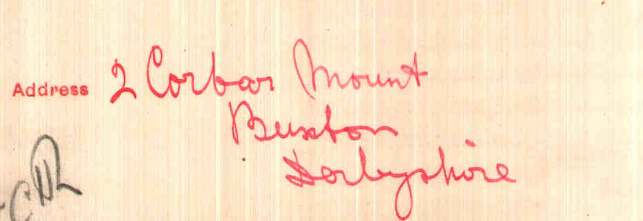 Address 2 Corbar Mount
Buxton
Derbyshire